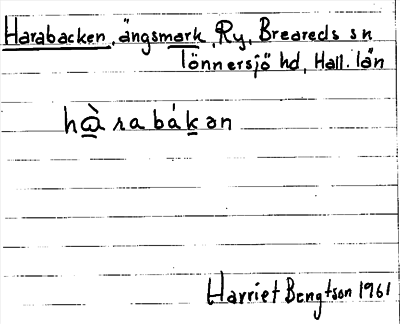 Harabacken, ängsmark, Ry, Breareds sn
lönnersjö hd, Hall. län
hà̱rabáḵən
Harriet Bengtson 1961